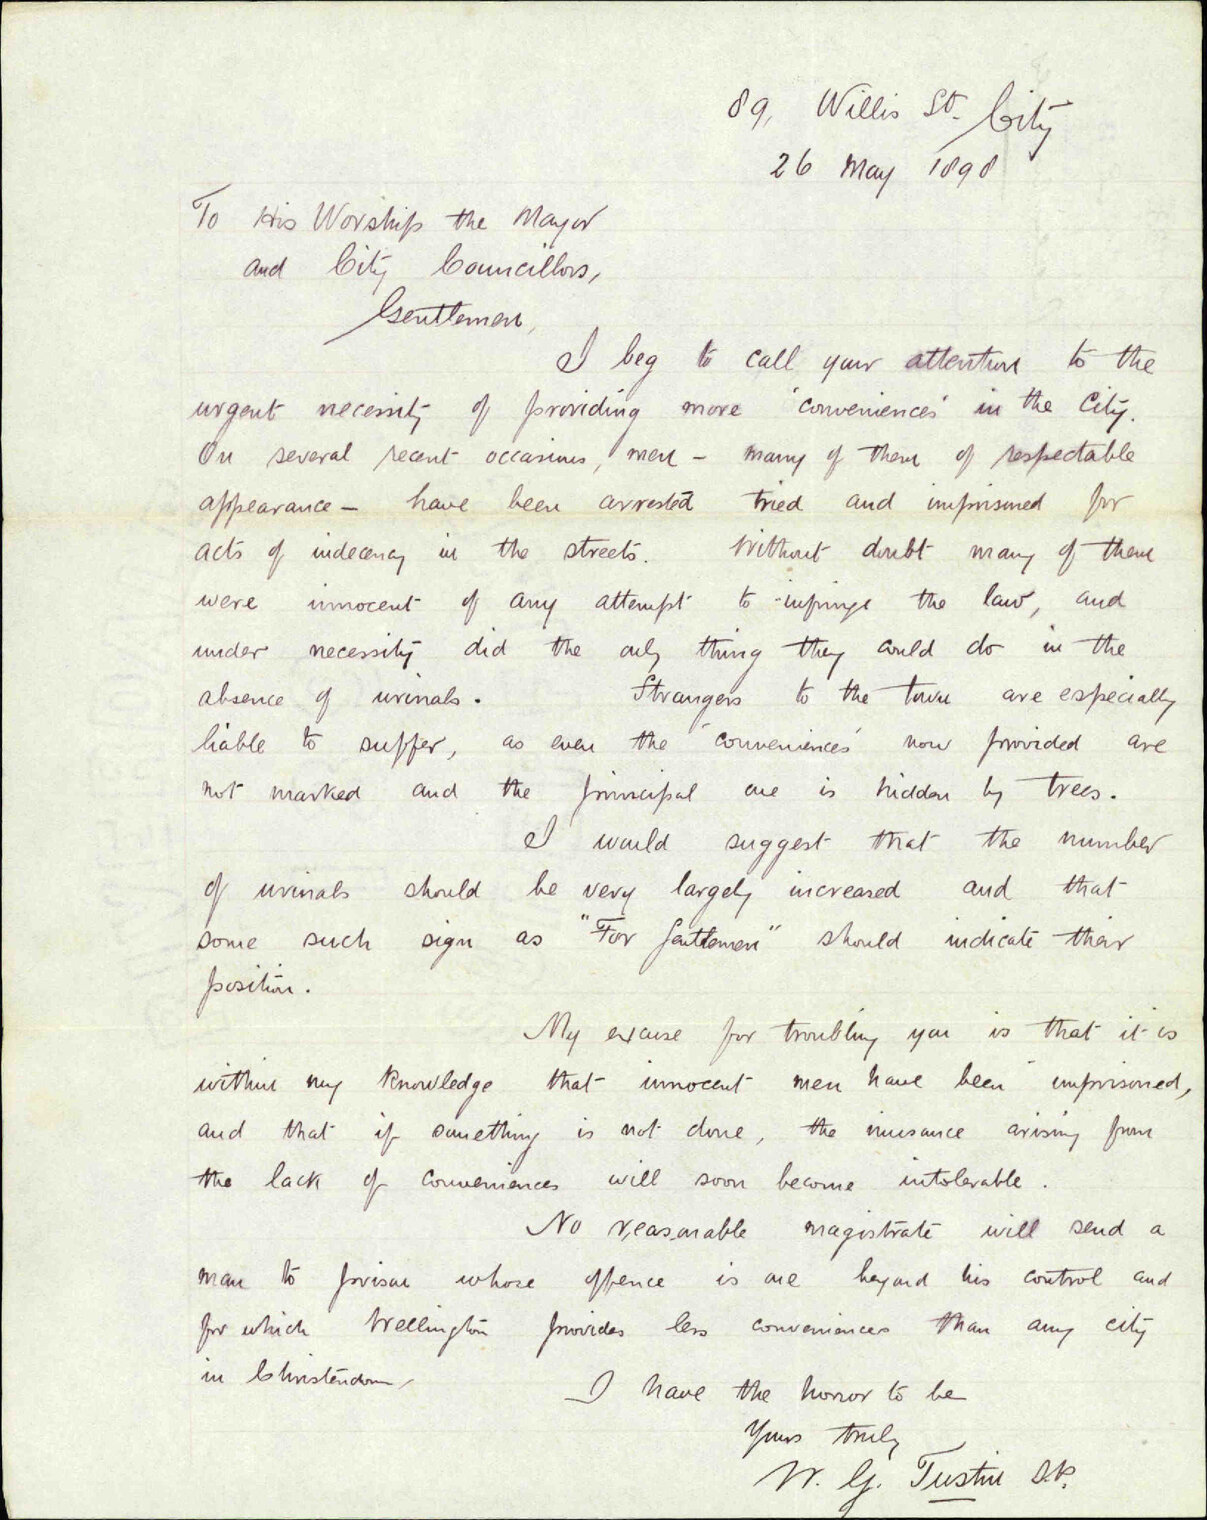 89, Willis St. City
26 May 1898
To His Worship the Mayor
and City Councillors,
Gentlemen,
I beg to call your attention to the
urgent necessity of providing more 'conveniences' in the City.
On several recent occasions, men – many of them of respectable
appearance – have been arrested tried and imprisoned for
acts of indecency in the streets. Without doubt many of them
were innocent of any attempt to infringe the law, and
under necessity did the only thing they could do in the
absence of urinals. Strangers to the town are especially
liable to suffer, as even the 'conveniences' now provided are
not marked and the principal one is hidden by trees.
I would suggest that the number
of urinals should be very largely increased and that
some such sign as "For Gentlemen" should indicate their
position.
My excuse for troubling you is that it is
within my knowledge that innocent men have been imprisoned,
and that if something is not done, the nuisance arising from
the lack of conveniences will soon become intolerable.
No reasonable magistrate will send a
man to prison whose offence is one beyond his control and
for which Wellington provides less conveniences than any city
in Christendom,
I have the honor to be
Yours truly
W. G. Tustin J.P.